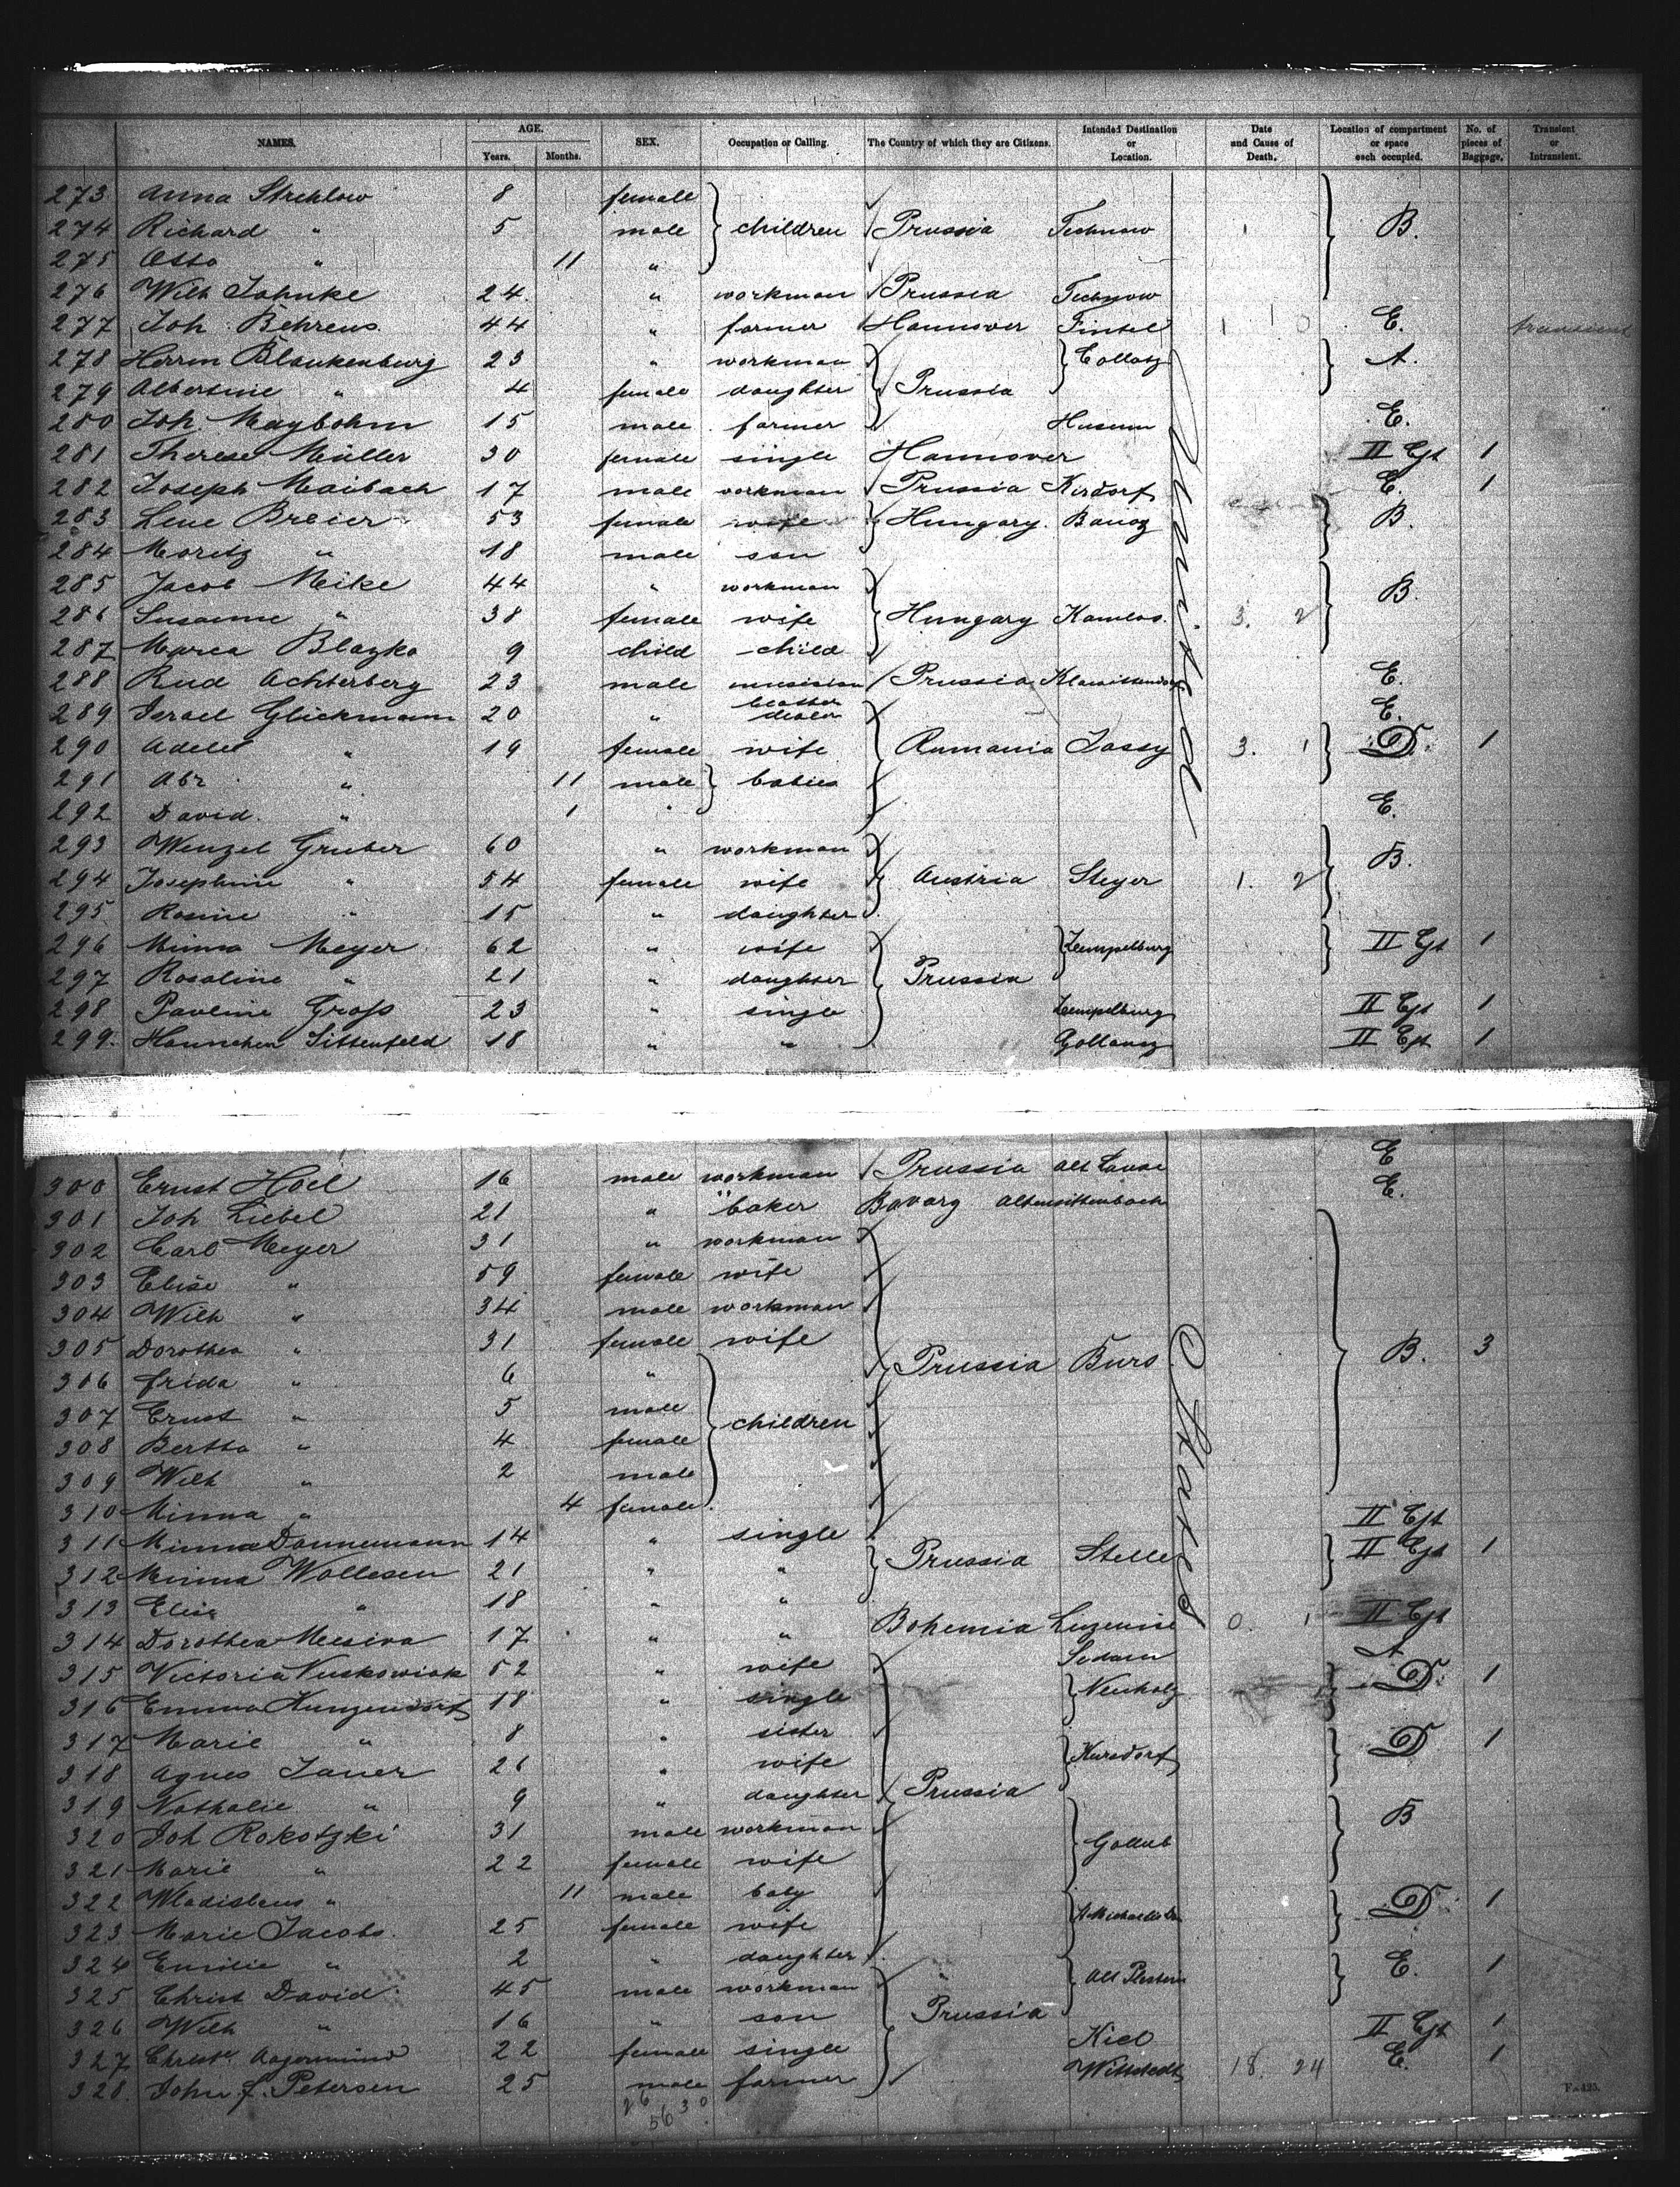 NAMES. AGE. Years. Months. SEX. Occupation or Calling. The Country of which they are Citizens. Intended Destination or Location. Date and Cause of Death. Location of compartment or space each occupied. No. of pieces of Baggage. Transient or Intransient.
273 Anna Strehlow 8 female
274 Richard " 5 male children Prussia Technow B.
275 Otto " 11 "
276 Wilh Jahnke 24 " workman Prussia Technow
277 Joh. Behrens 44 " farmer Hannover Fintel E. transient
278 Herrm Blankenburg 23 " workman Collatz A.
279 Albertine " 4 female daughter Prussia
280 Joh. Maybohm 15 male farmer Husum E.
281 Therese Müller 30 female single Hannover II Cjt 1
282 Joseph Maibach 17 male workman Prussia Kirdorf E. 1
283 Lene Breier 53 female wife Hungary. B.
284 Moritz " 18 male son
285 Jacob Mike 44 " workman B.
286 Susanne " 38 female wife Hungary Kamlos. 3. 2
287 Maria Blazko 9 child child
288 Rud Achterberg 23 male musician Prussia E.
289 Israel Glickmann 20 " leather dealer E.
290 Adele " 19 female wife Rumania Jassy 3. 1 D. 1
291 Abr " 11 male babies
292 David. " 1 " E.
293 Wenzel Gruber 60 " workman B.
294 Josephine " 54 female wife Austria Steyer 1. 2
295 Rosine " 15 " daughter
296 Minna Meyer 62 " wife Zempelburg II Cjt 1
297 Rosaline " 21 " daughter Prussia
298 Pauline Groß 23 " single Zempelburg II Cjt 1
299. Hannchen Sittenfeld 18 " " Gollancz II Cjt 1
E
300 Ernst Hoel 16 male workman Prussia E.
301 Joh Liebel 21 " baker Bavarg Altensittenbach
302 Carl Meyer 31 " workman
303 Elise " 59 female wife
304 Wilh " 34 male workman
305 Dorothea " 31 female wife Prussia Burg B. 3
306 Frida " 6 "
307 Ernst " 5 male children
308 Bertha " 4 female
309 Wilh " 2 male
310 Minna " 4 female II Cjt
311 Minna Dannemann 14 " single II Cjt 1
312 Minna Wollesen 21 " " Prussia Stelle
313 Elise " 18 " " II Cjt
314 Dorothea 17 " " Bohemia 0. 1
315 Victoria 52 " wife A
316 Emma Kunzendorf 18 " single Neuholz D. 1
317 Marie " 8 " sister D 1
318 Agnes Jauer 26 " wife Kursdorf
319 Nathalie " 9 " daughter Prussia
320 Joh Rokotzki 31 male workman B
321 Marie " 22 female wife Gollub
322 Wladislaus " 11 male baby D 1
323 Marie Jacobs. 25 female wife
324 Emilie " 2 " daughter E. 1
325 Christ David 45 male workman "
326 Wilh " 16 " son Prussia II Cjt 1
327 22 female single Kiel E. 1
328. John f. Petersen 25 male farmer Wittstedt 18. 24
26 30
56
Fa. 125.